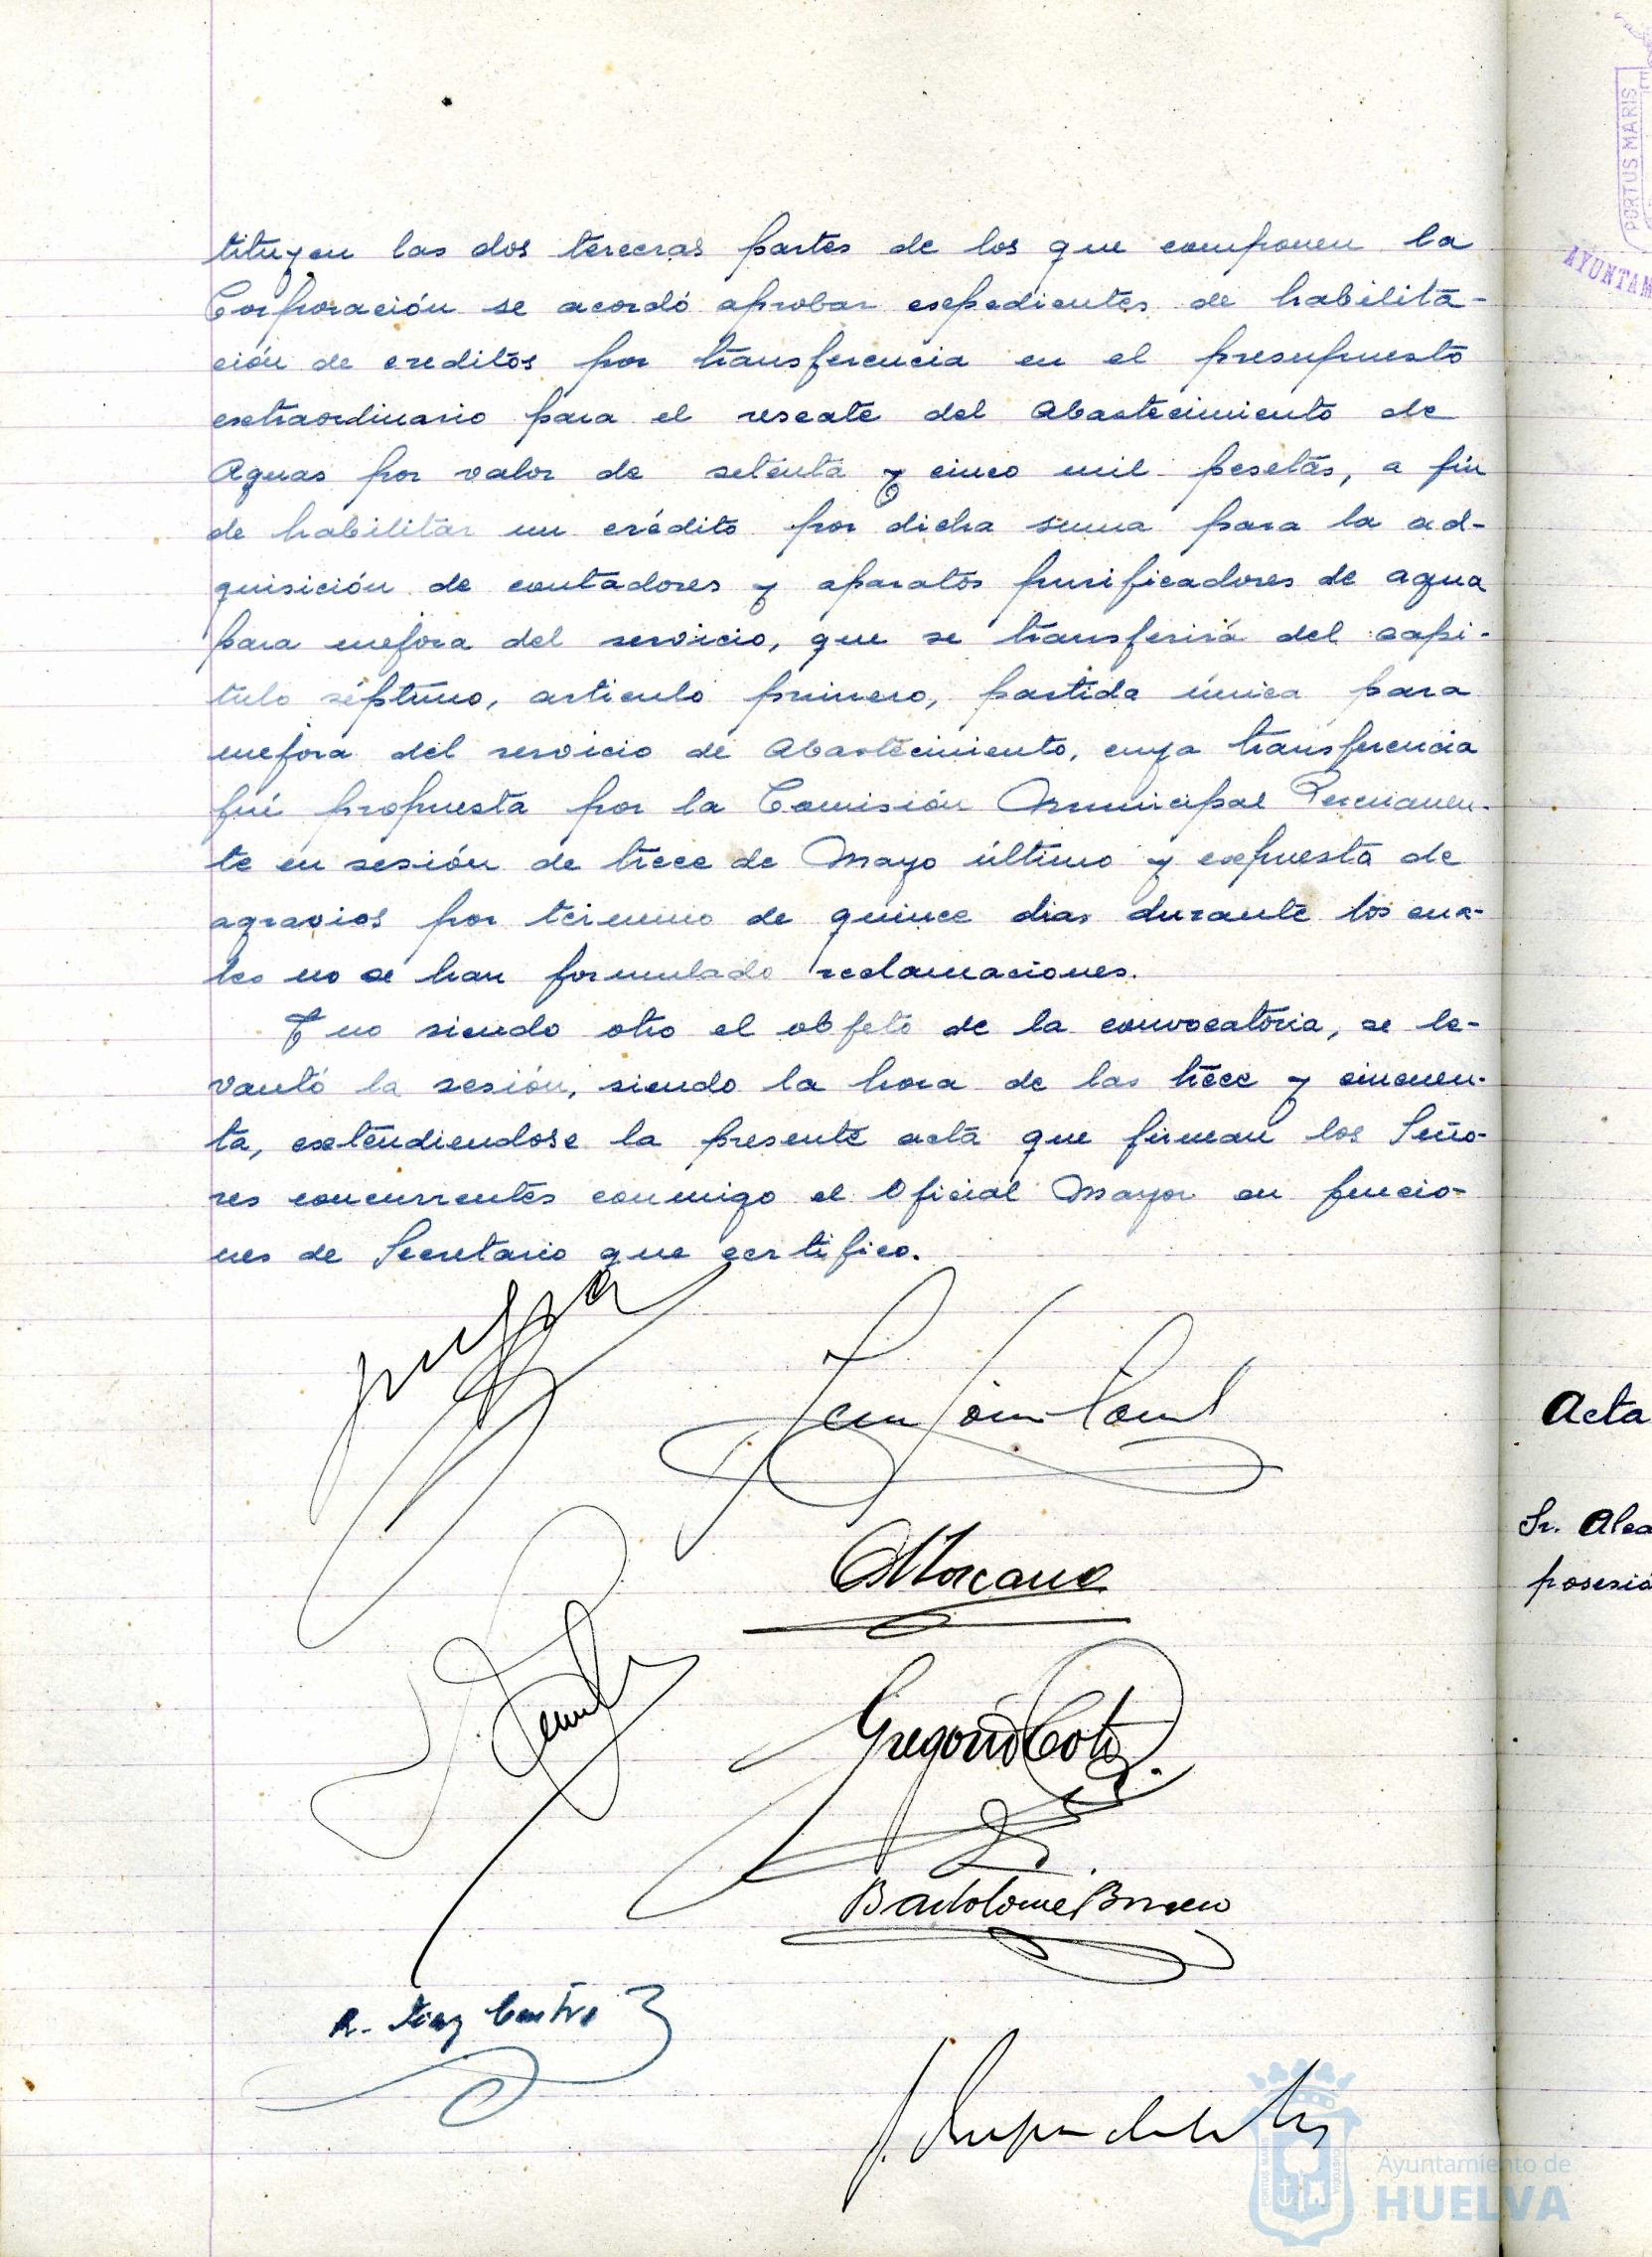 tituyen las dos terceras partes de los que componen la
Corporación se acordó aprobar expedientes de habilita-
ción de creditos por transferencia en el presupuesto
extraordinario para el rescate del Abastecimiento de
Aguas por valor de setenta y cinco mil pesetas, a fin
de habilitar un crédito por dicha suma para la ad-
quisición de contadores y aparatos purificadores de agua
para mejora del servicio, que se transferirá del capi-
tulo séptimo, articulo primero, partida única para
mejora del servicio de Abastecimiento, cuya transferencia
fué propuesta por la Comisión Municipal Permanen-
te en sesión de trece de Mayo último y expuesta de
agravios por termino de quince dias durante los cua-
les no se han formulado reclamaciones.
Y no siendo otro el objeto de la convocatoria, se le-
vantó la sesión, siendo la hora de las trece y cincuen-
ta, extendiendose la presente acta que firman los Seño-
res concurrentes conmigo el Oficial Mayor en funcio-
nes de Secretario que certifico.
Gregorio
Bartolome
R. Diaz Castro
PORTUS MARIS
AYUNTAM
Acta
Sr. Alca
posesió
Ayuntamiento de
HUELVA